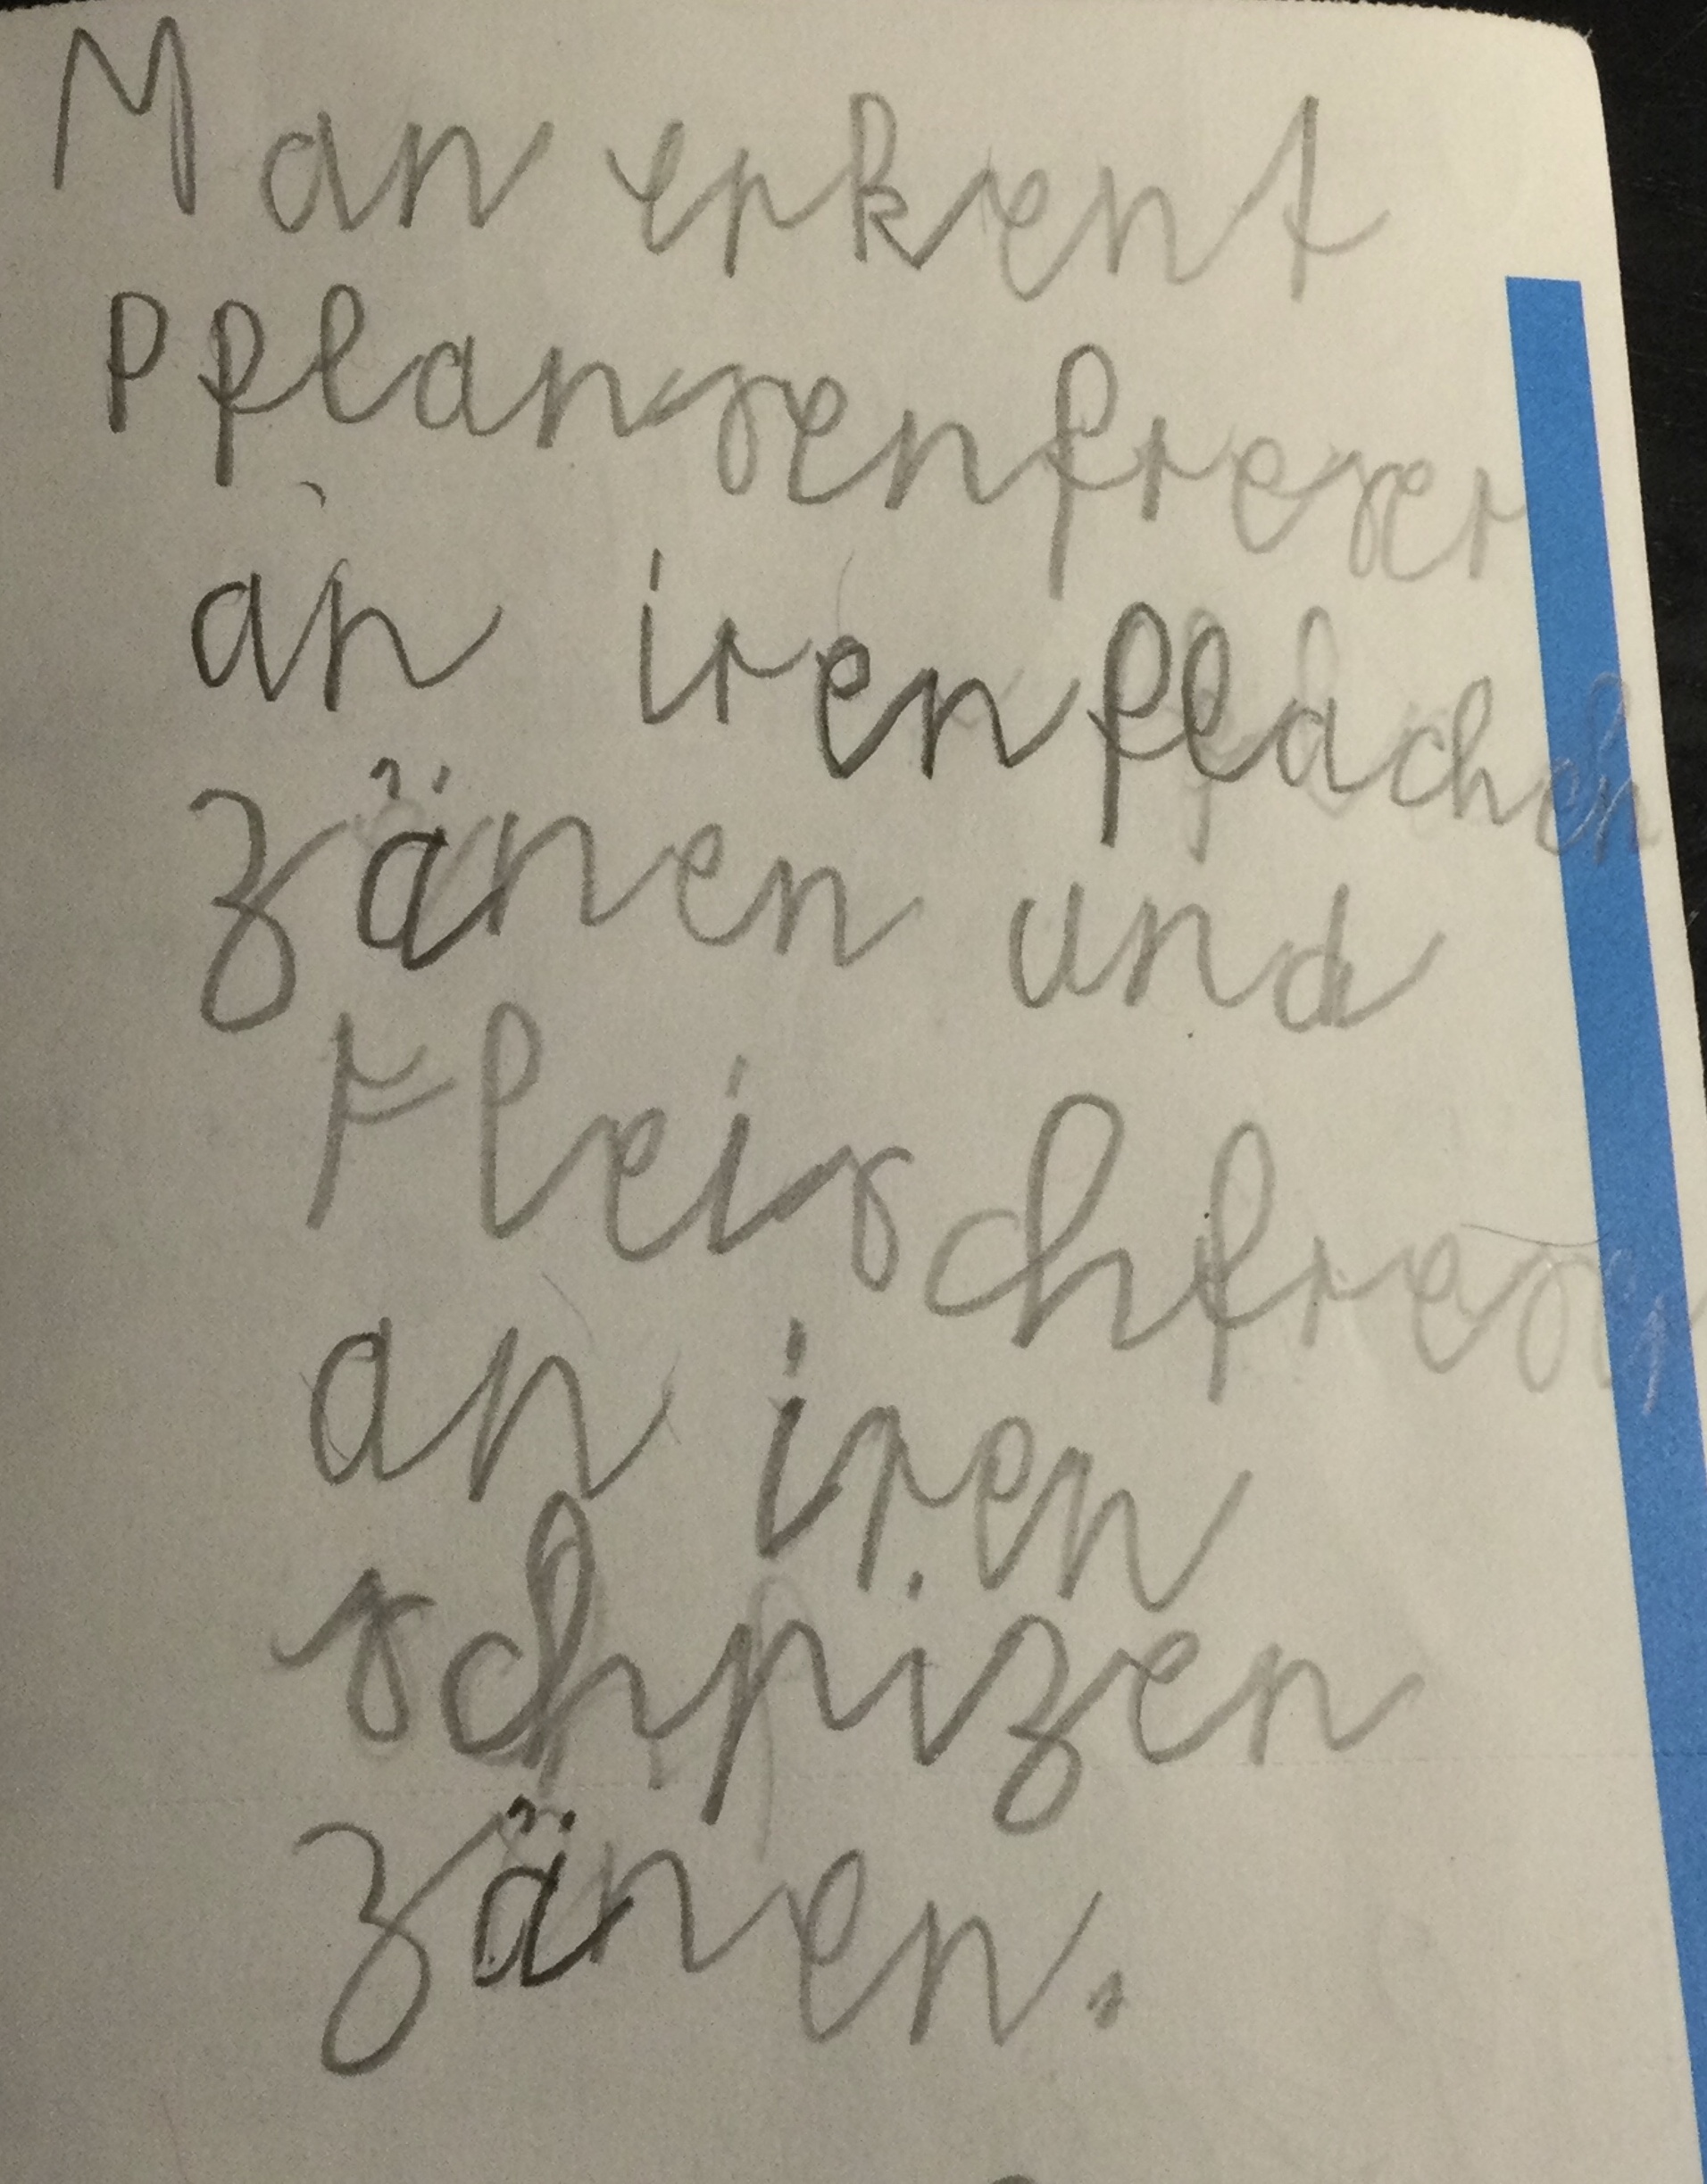 Man erkent
Pflansenfreser
an iren flachen
zänen und
Fleischfreser
an iren
schpizen
zänen.